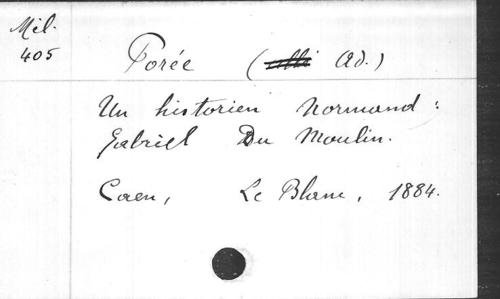 Mél.
405
Porée (Ad.)
Un historien Normand :
Gabriel Du Moulin.
Caen, Le Blanc, 1884.